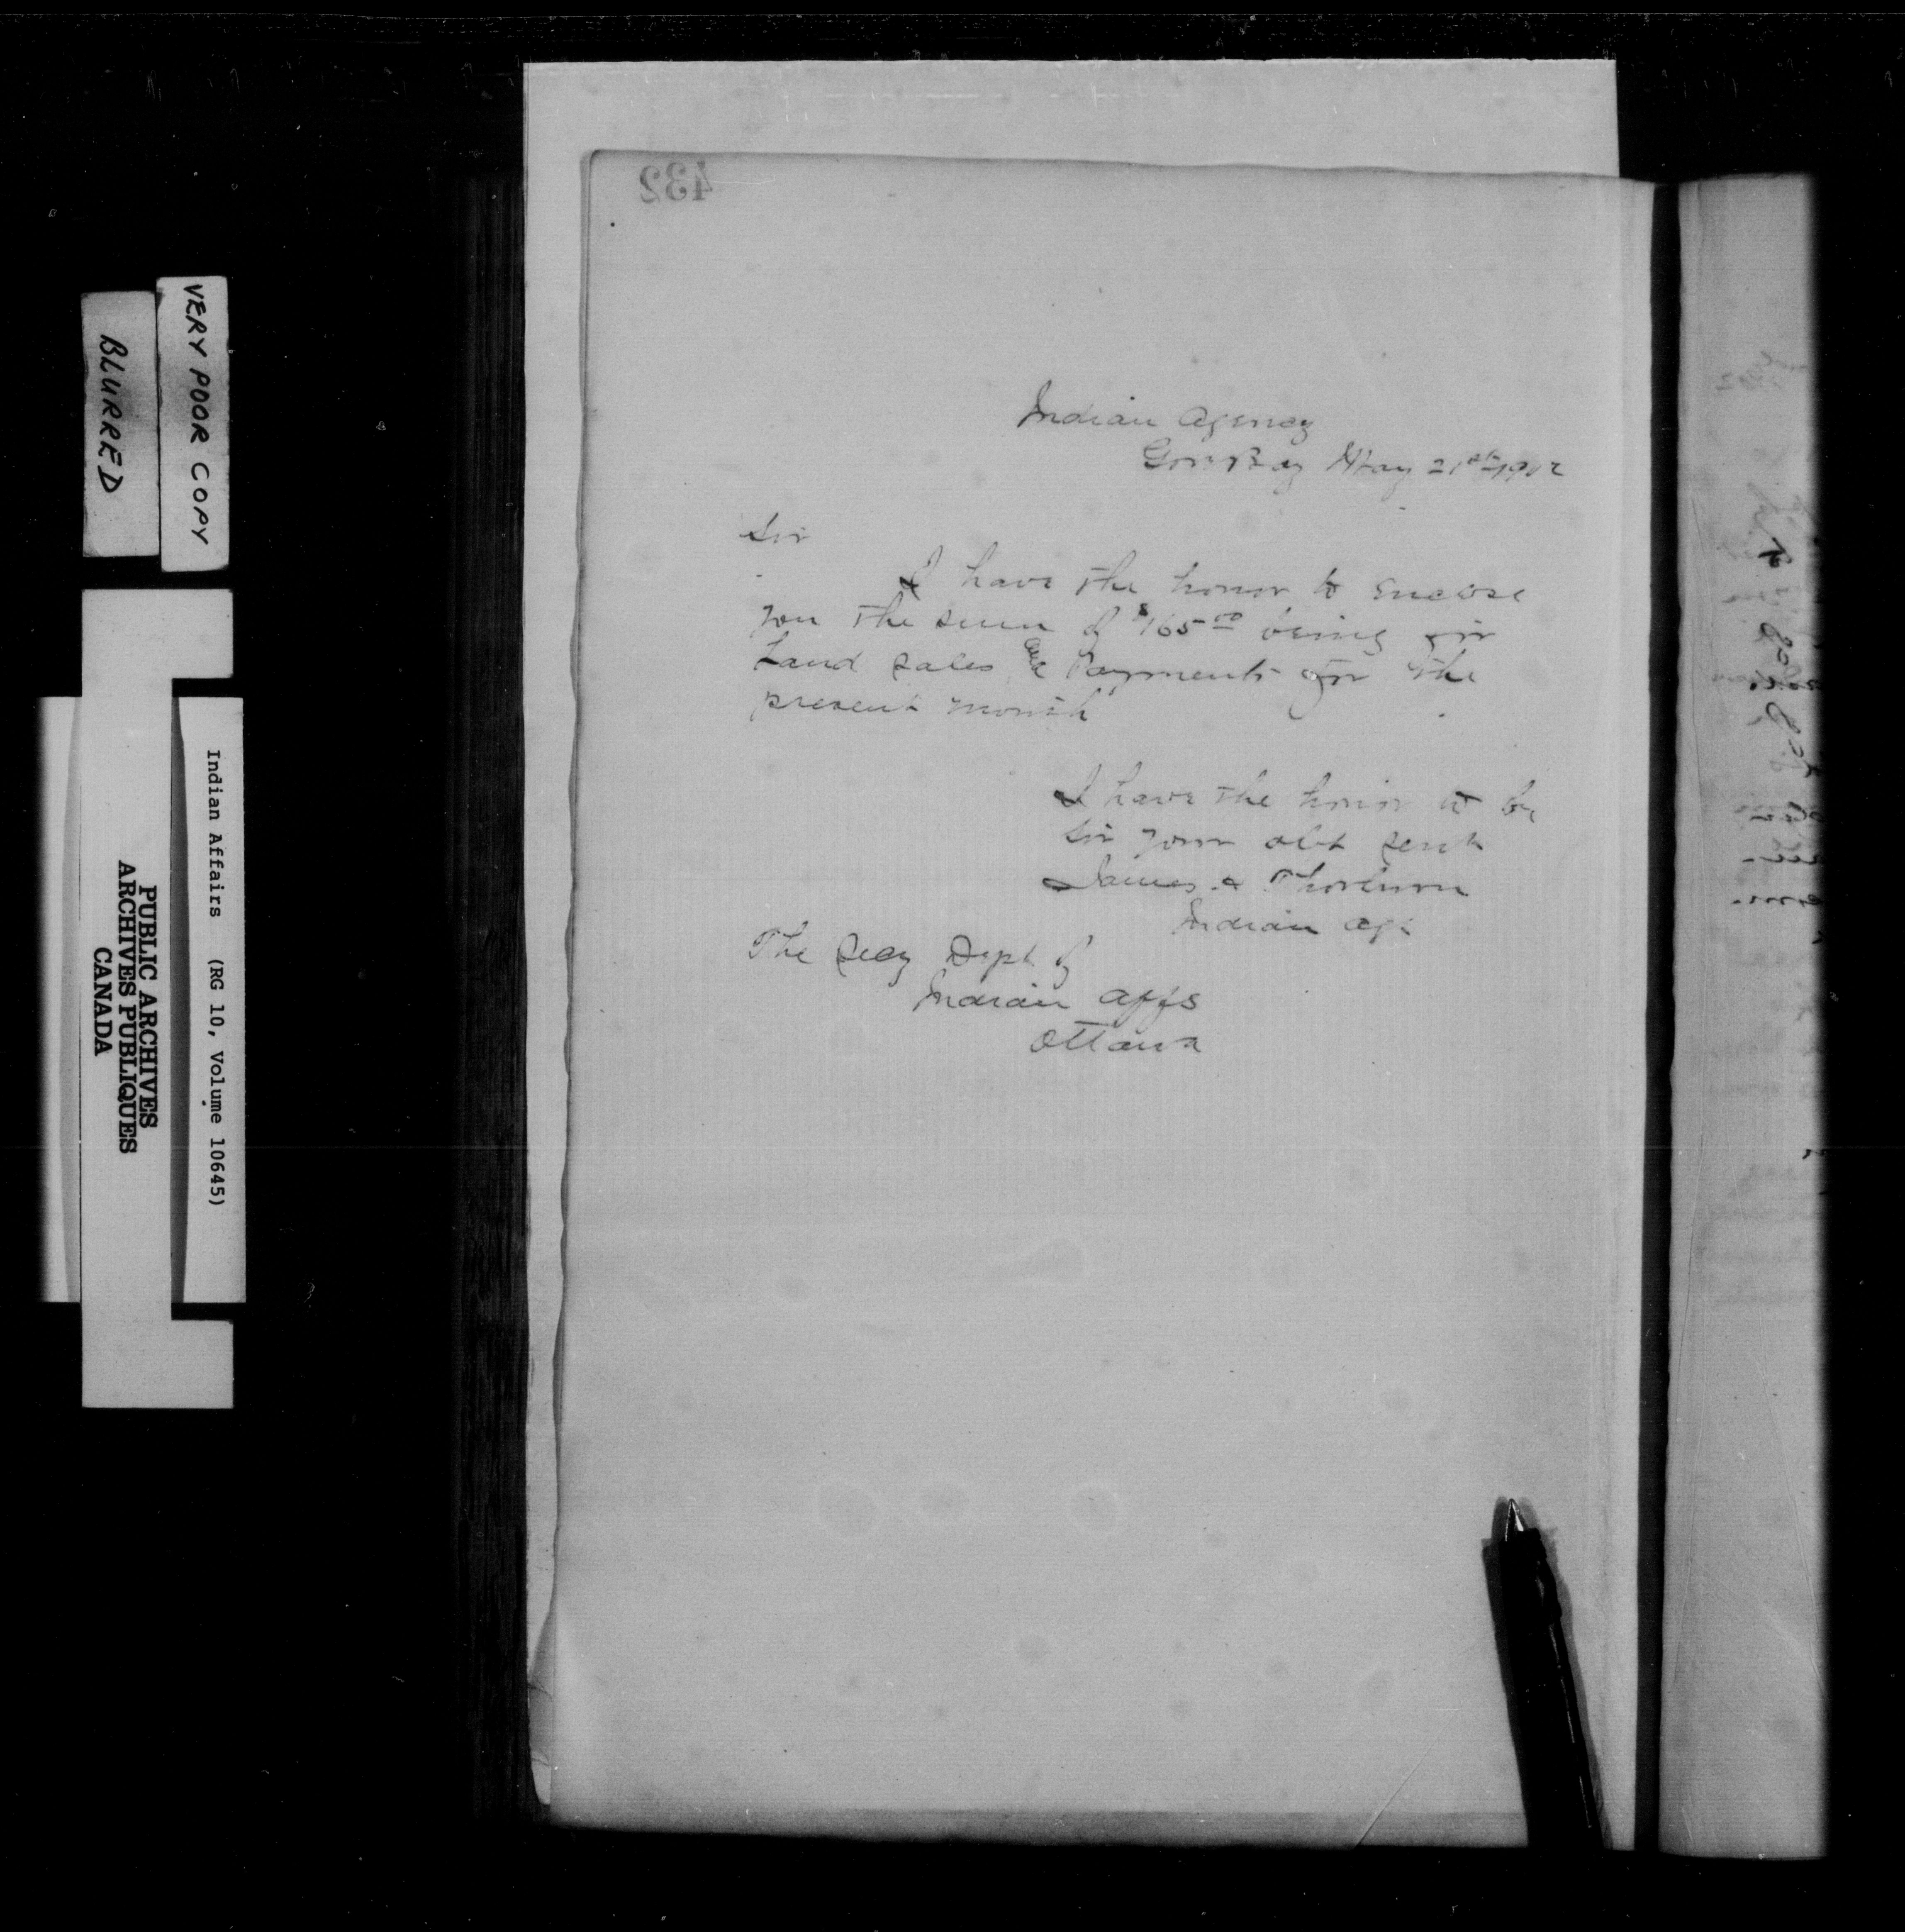 432
Indian Agency
Gore Bay May 21st 1902
Sir
I have the honor to enclose
you the sum of $165.00 being for
Land sales and Payments for the
present month
I have the honor to be
Sir your obt servt
James H Thorburn
Indian Agt
The Secy Dept of
Indian Affs
Ottawa
VERY POOR COPY
BLURRED
Indian Affairs (RG 10, Volume 10645)
PUBLIC ARCHIVES
ARCHIVES PUBLIQUES
CANADA